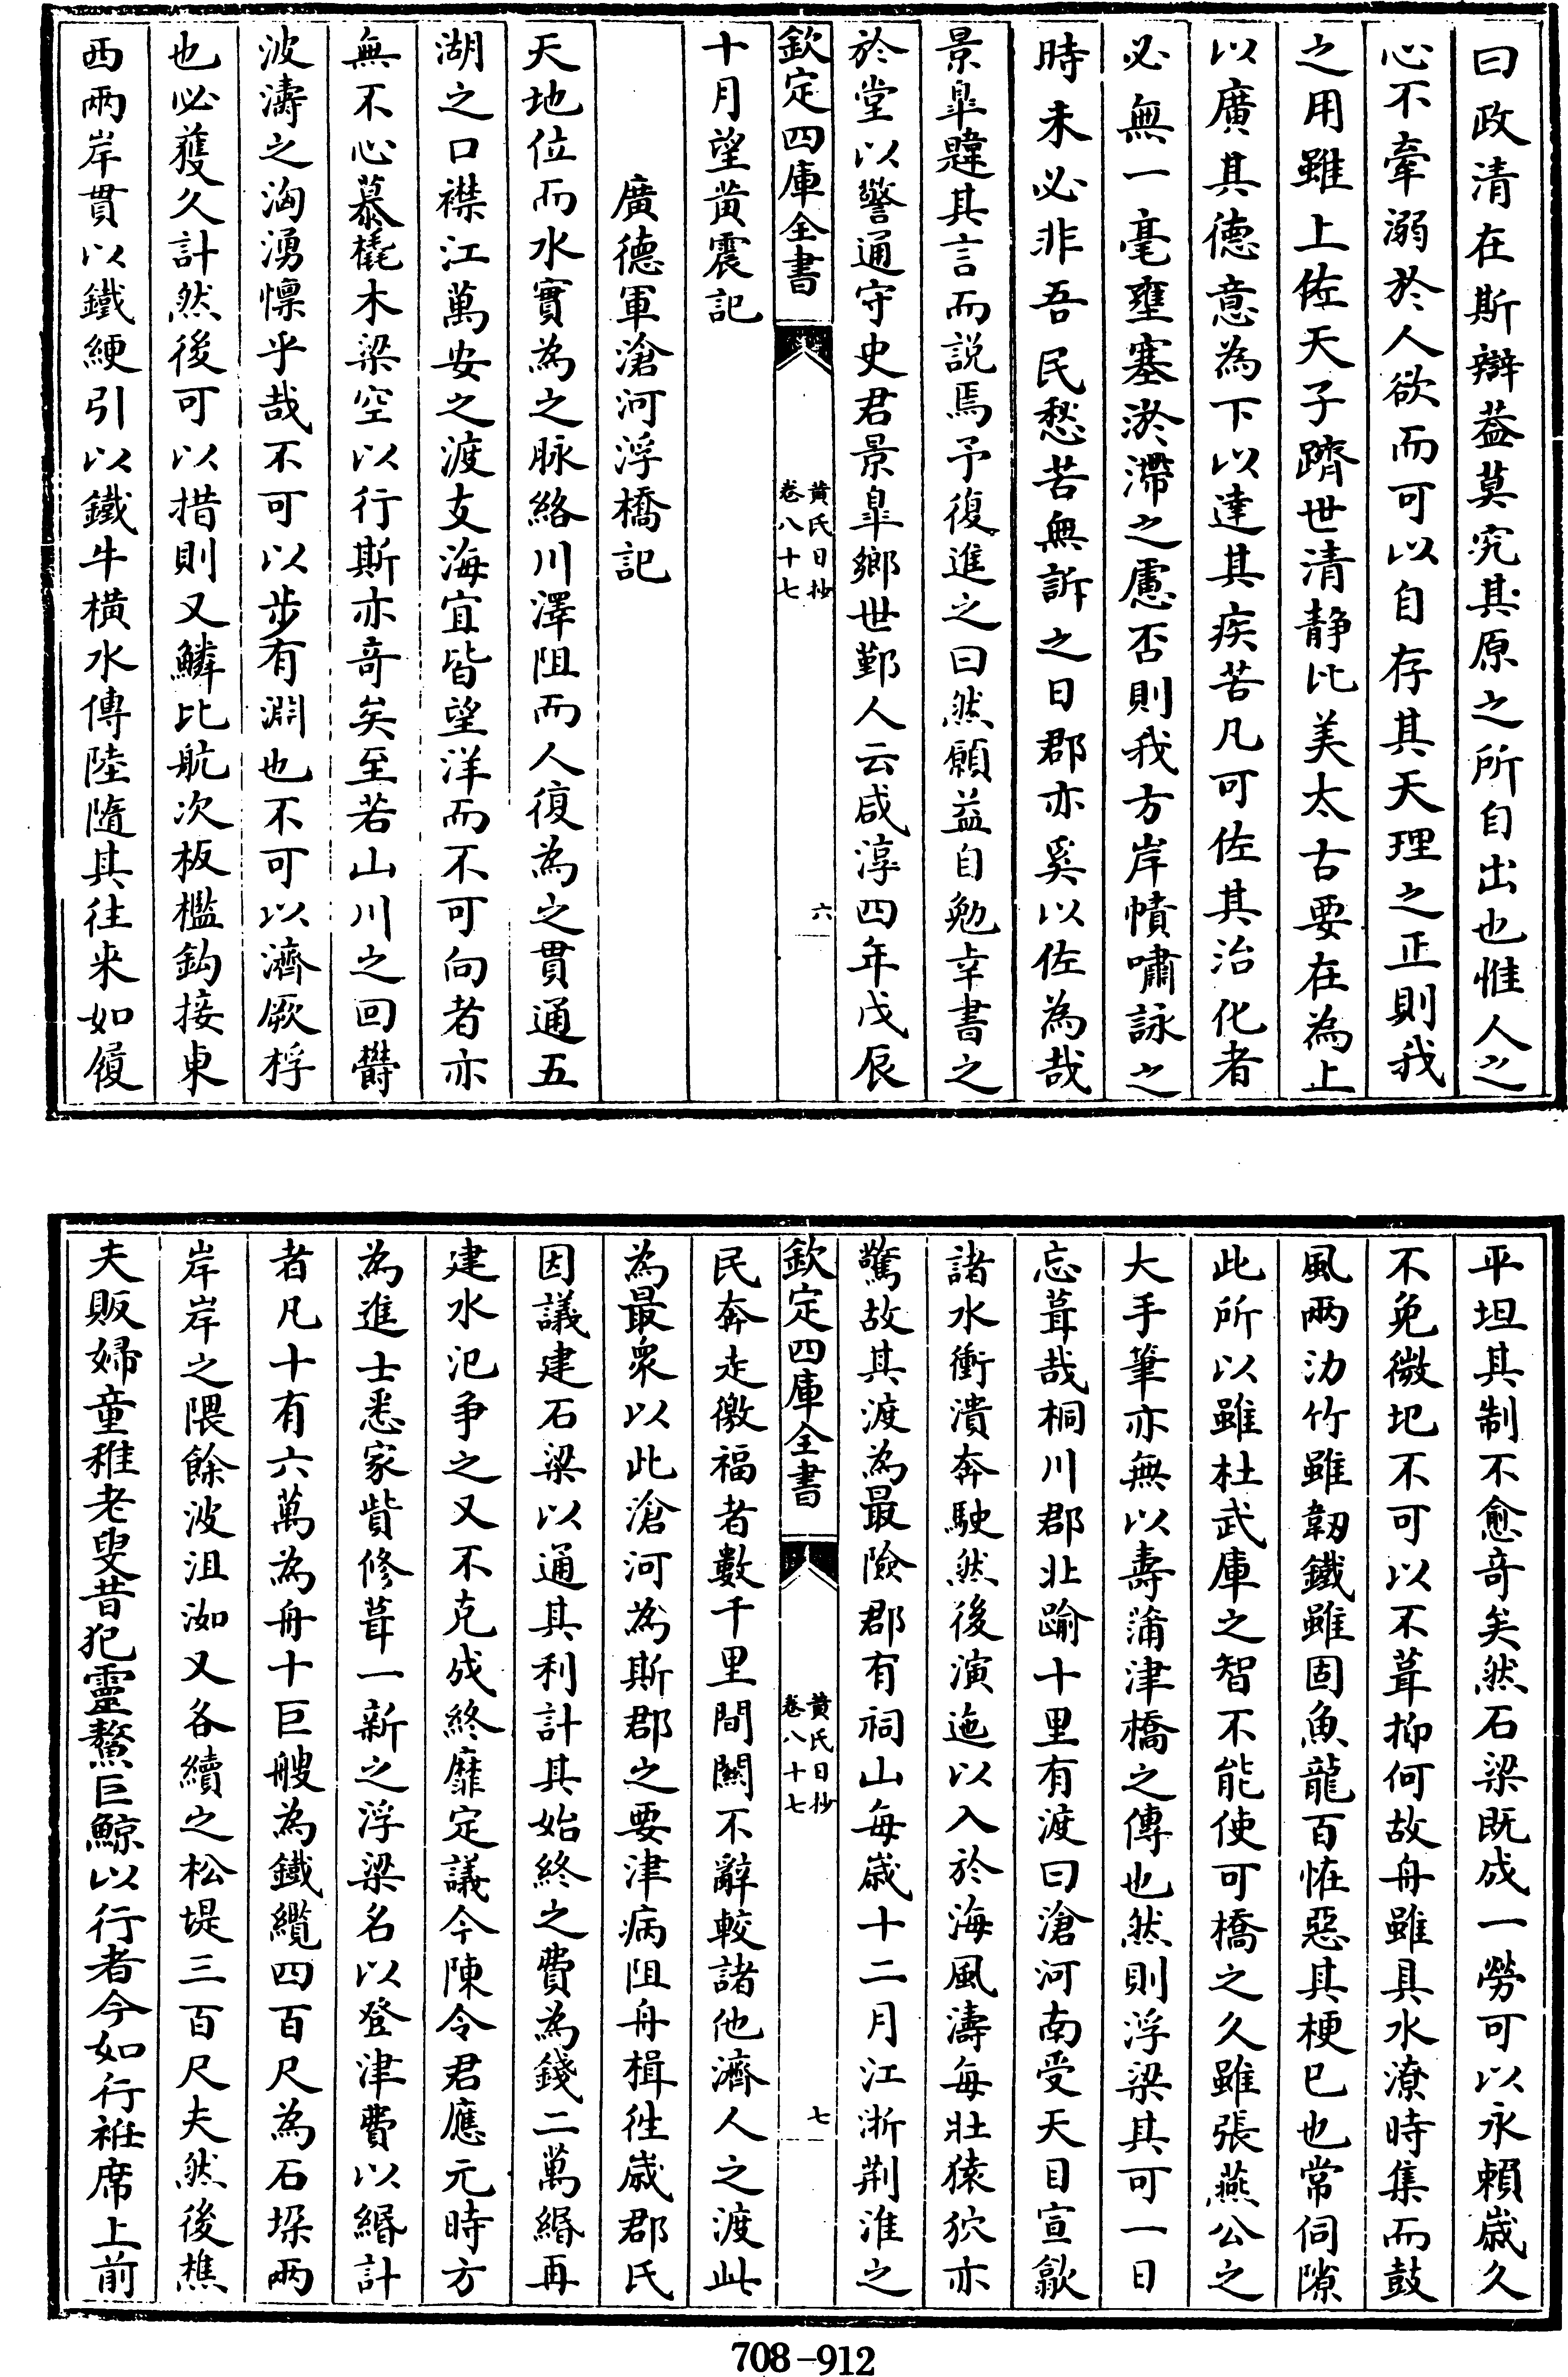 曰政清在斯辯葢莫究其原之所自出也惟人之
心不牽溺於人欲而可以自存其天理之正則我
之用雖上佐天子躋世清静比美太古要在為上
以廣其德意為下以達其疾苦凡可佐其治化者
必無一毫壅塞淤滯之慮否則我方岸幘嘯詠之
時未必非吾民愁苦無訴之日郡亦奚以佐為哉
景臯韙其言而説焉予復進之曰然願益自勉幸書之
於堂以警通守史君景臯鄉世鄞人云咸淳四年戊辰
欽定四庫全書
黄氏日抄
卷八十七
六
十月望黄震記
廣德軍滄河浮橋記
天地位而水實為之脉絡川澤阻而人復為之貫通五
湖之口襟江萬安之渡支海宜皆望洋而不可向者亦
無不心慕橇木梁空以行斯亦竒矣至若山川之回欝
波濤之洶湧懍乎哉不可以步有淵也不可以濟厥桴
也必䕶久計然後可以措則又鱗比航次板檻鈎接東
西兩岸貫以鐵綆引以鐵牛橫水傳陸隨其往來如履
平坦其制不愈竒矣然石梁既成一勞可以永賴嵗久
不免微圮不可以不葺抑何故舟雖具水潦時集而鼓
風兩泐竹雖韌鐵雖固魚龍百恠惡其梗已也常伺隙
此所以雖杜武庫之智不能使可橋之久雖張燕公之
大手筆亦無以壽蒲津橋之傳也然則浮梁其可一日
忘葺哉桐川郡北踰十里有渡曰滄河南受天目宣歙
諸水衝潰奔駛然後演迤以入於海風濤每壯猿狖亦
驚故其渡為最險郡有祠山每嵗十二月江浙荆淮之
欽定四庫全書
黄氏日抄
卷八十七
七
民奔走徼福者數千里間闗不辭較諸他濟人之渡此
為最衆以此滄河為斯郡之要津病阻舟楫徃嵗郡氏
因議建石梁以通其利計其始終之費為錢二萬緡再
建水氾争之又不克成終靡定議今陳令君應元時方
為進士悉家貲修葺一新之浮梁名以登津費以緡計
者凡十有六萬為舟十巨艘為鐵纜四百尺為石垜兩
岸岸之隈餘波沮洳又各續之松堤三百尺夫然後樵
夫販婦童稚老叟昔犯靈鰲巨鯨以行者今如行袵席上前
708-912